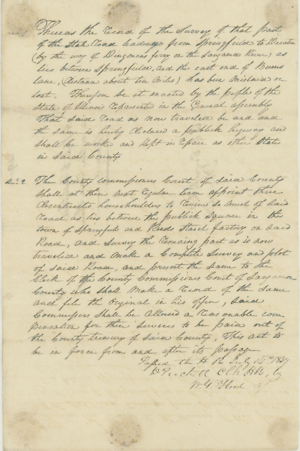 Whereas the Record of the Survey of that part
of the State Road leading from Springfield to Decatur
(by the way of Ferry on the Sangamon River) as
lies between Springfield and the east end of
lane, (Distance about ten Miles) has been mislaid or
lost. Therefore be it enacted by the people of the
State of Illinois represented in the General assembly
That said Road as now traveled be and
the same is hereby declared a publick highway and
shall be worked and kept in repair as other State
in said County
Sec. 2 The County Commissioners Court of said County
shall at their next regular term appoint three
householders to review so much of said
Road as lies between the publick Square in the
town of Springfield and factory on said
Road, and Survey the remaining part as is now
traveled and make a complete Survey and plot
of said Road, and present the same to the
Clerk of the County Commissioners Court of Sangamon
County who shall make a record of the same
and file the original in his office, Said
Commissioners shall be allowed a reasonable com
pensation for their services to be paid out of
the County treasury of said County, This act to
be in force from and after its passage
Passed the H. R. July 15th 1837
Clk H. R.